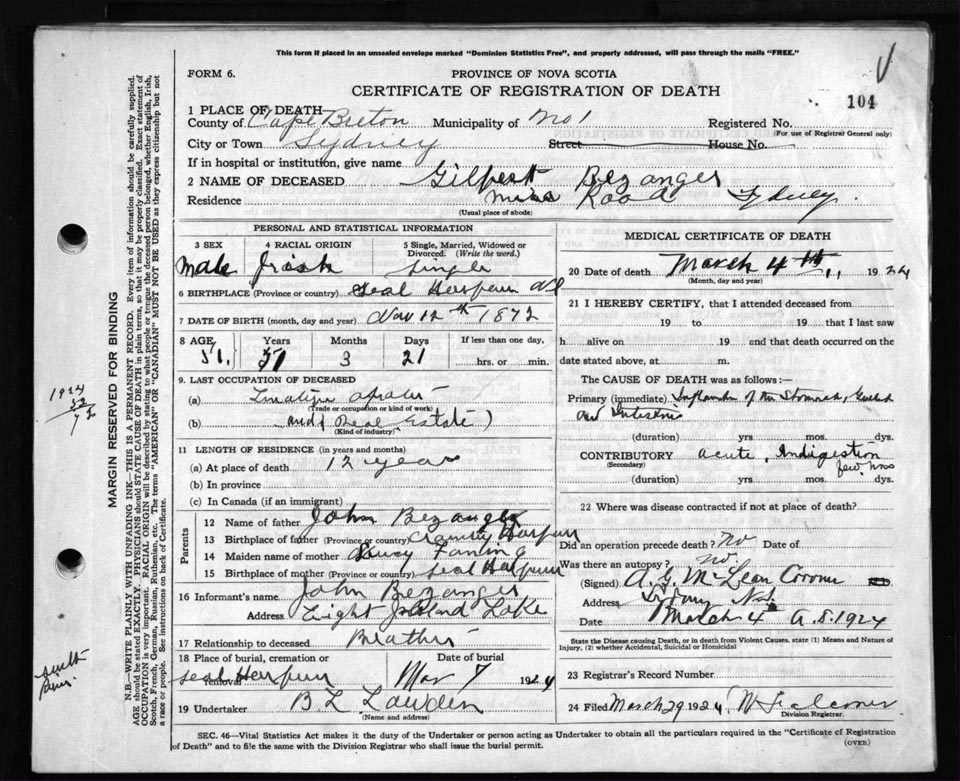 This form if placed in an unsealed envelope marked "Dominion Statistics Free", and properly addressed, will pass through the mails "FREE."
FORM 6.
PROVINCE OF NOVA SCOTIA
CERTIFICATE OF REGISTRATION OF DEATH
104
1 PLACE OF DEATH
County of Cape Breton Municipality of No 1 Registered No.
(For use of Registrar General only)
City or Town Sydney Street House No.
If in hospital or institution, give name
2 NAME OF DECEASED Gilbert Bezanger
Residence Mira Road Sydney.
(Usual place of abode)
PERSONAL AND STATISTICAL INFORMATION
3 SEX 4 RACIAL ORIGIN 5 Single, Married, Widowed or Divorced. (Write the word.)
Male Irish Single
6 BIRTHPLACE (Province or country)
7 DATE OF BIRTH (month, day and year) Nov 12th 1872
8 AGE Years Months Days If less than one day,
51. 3 21 hrs. or min.
9. LAST OCCUPATION OF DECEASED
(a)
(Trade or occupation or kind of work)
(b) and Real Estate)
(Kind of industry)
11 LENGTH OF RESIDENCE (in years and months)
(a) At place of death 12 year
(b) In province
(c) In Canada (if an immigrant)
Parents
12 Name of father John Bezanger
13 Birthplace of father (Province or country)
14 Maiden name of mother Lucy Fanning
15 Birthplace of mother (Province or country)
16 Informant's name John Bezanger
Address Eight Island Lake
17 Relationship to deceased Brother
18 Place of burial, cremation or removal Date of burial
Mar 7 1924
19 Undertaker
(Name and address)
MEDICAL CERTIFICATE OF DEATH
20 Date of death March 4th, 1924
(Month, day and year)
21 I HEREBY CERTIFY, that I attended deceased from
19 to 19 that I last saw
h alive on 19 and that death occurred on the
date stated above, at m.
The CAUSE OF DEATH was as follows:
Primary (immediate) of the Stomach,
and
(duration) yrs. mos. dys.
CONTRIBUTORY acute Indigestion
(Secondary)
(duration) yrs. mos. dys.
22 Where was disease contracted if not at place of death?
Did an operation precede death? No Date of
Was there an autopsy? no.
(Signed) A. G. McLean Coroner
Address Sydney N.S.
Date March 4 A.D. 1924
State the Disease causing Death, or in death from Violent Causes, state (1) Means and Nature of Injury, (2) whether Accidental, Suicidal or Homicidal
23 Registrar's Record Number
24 Filed March 29 1924
Division Registrar.
SEC. 46—Vital Statistics Act makes it the duty of the Undertaker or person acting as Undertaker to obtain all the particulars required in the "Certificate of Registration of Death" and to file the same with the Division Registrar who shall issue the burial permit.
(OVER)
MARGIN RESERVED FOR BINDING
N.B.—WRITE PLAINLY WITH UNFADING INK—THIS IS A PERMANENT RECORD. Every item of information should be carefully supplied.
AGE should be stated EXACTLY. PHYSICIANS should state CAUSE OF DEATH in plain terms, so that it may be properly classified. Exact statement of
OCCUPATION is very important. RACIAL ORIGIN will be described by stating to what people or tongue the deceased person belonged, whether English, Irish,
Scotch, French, German, Russian, Ruthenian, etc. The terms "AMERICAN" OR "CANADIAN" MUST NOT BE USED as they express citizenship but not
a race or people. See instructions on back of Certificate.
1924
52
72